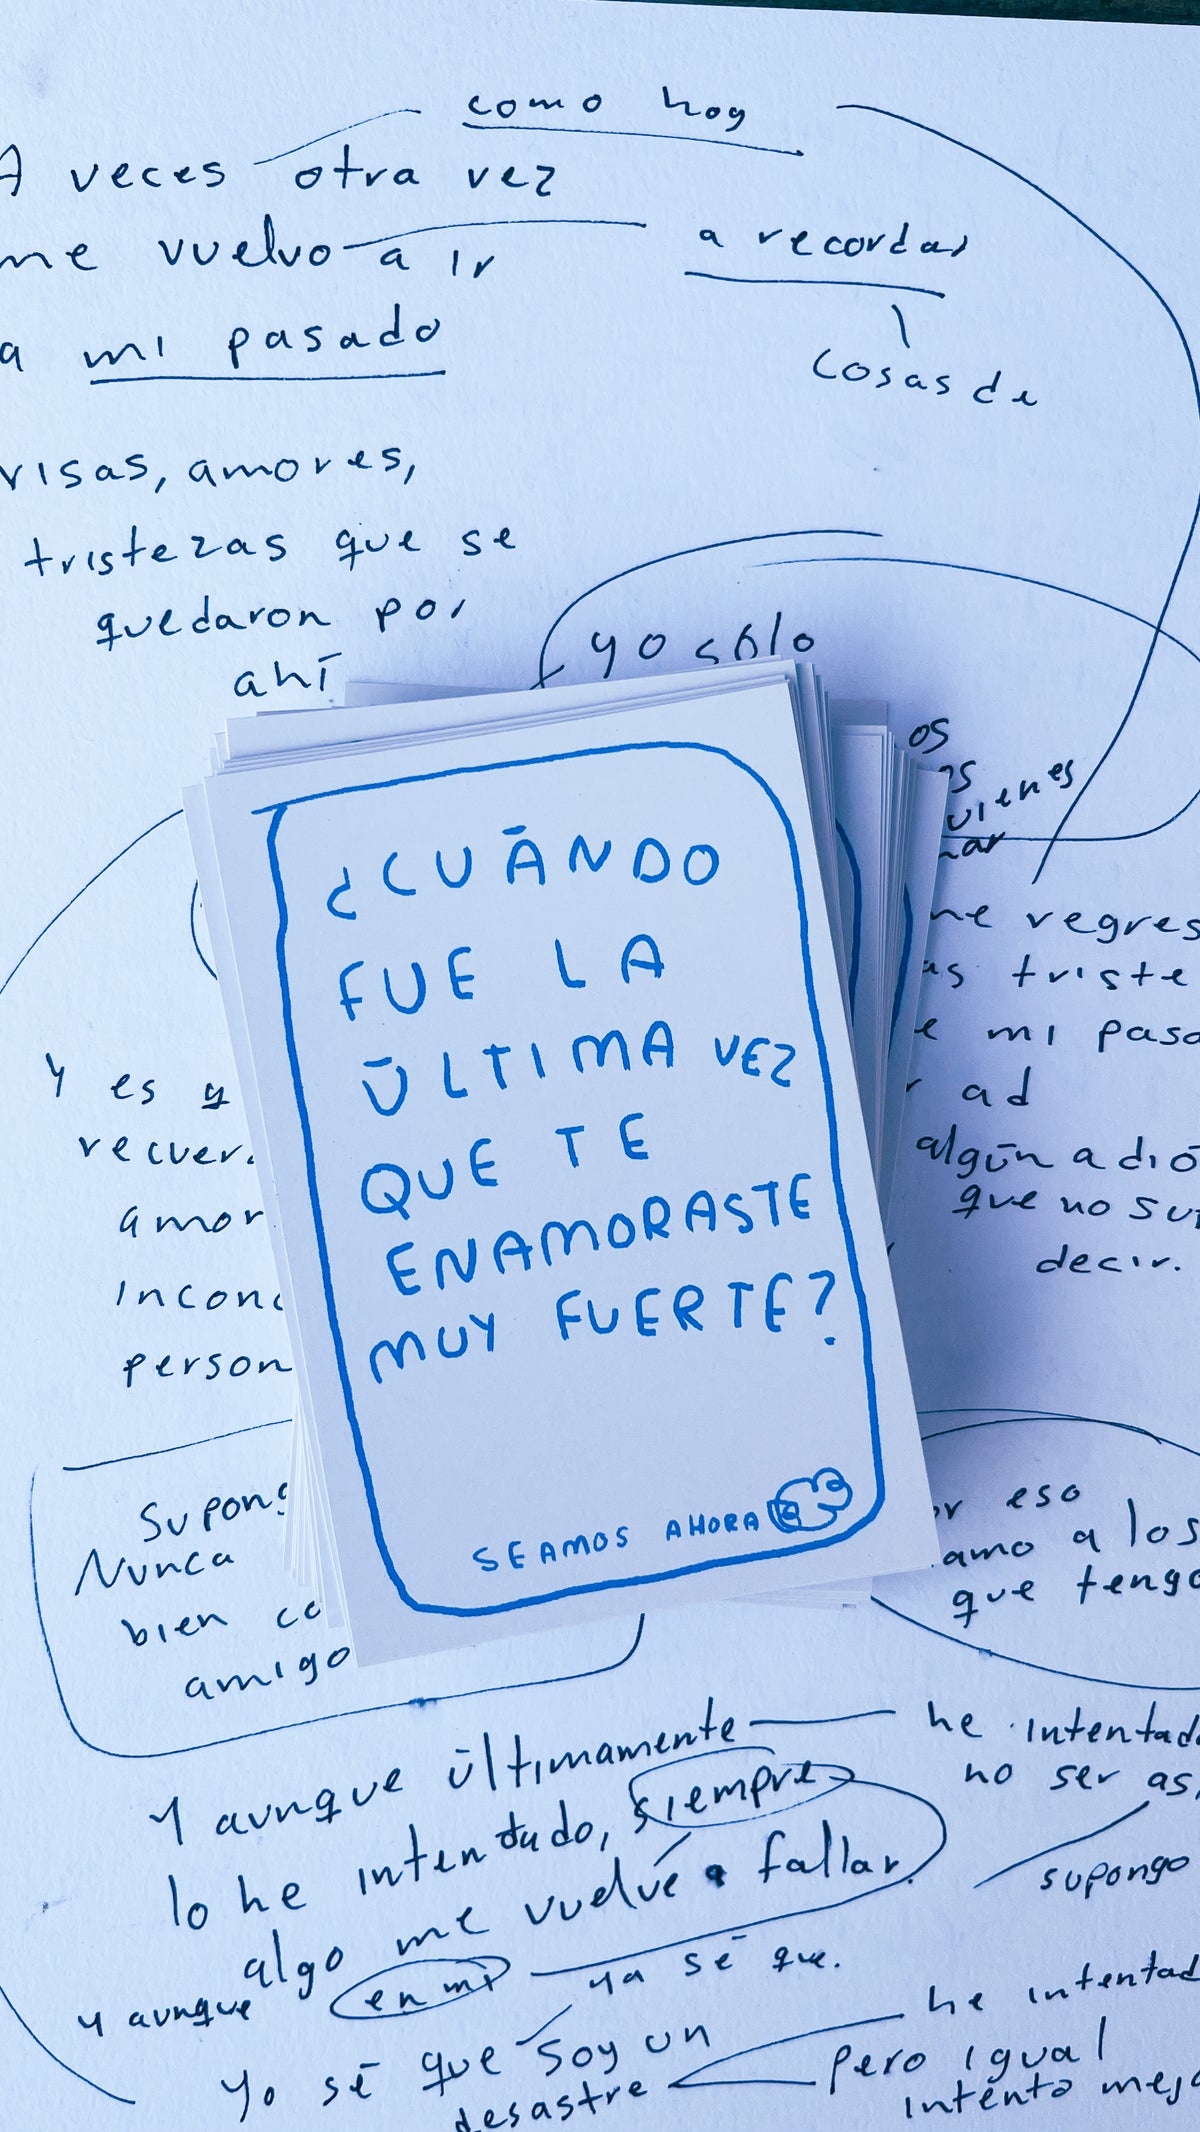 como hoy
A veces otra vez
me vuelvo a ir
a recordar
a mi pasado
cosas de
risas, amores,
tristezas que se
quedaron por
ahí
yo sólo
¿CUÁNDO
FUE LA
ÚLTIMA VEZ
QUE TE
ENAMORASTE
MUY FUERTE?
SEAMOS AHORA
os
me
as triste
mi
ad
algún adió
que no su
decir.
Y es y
amor
person
Nunca
bien
amigo
eso
amo a los
que tengo
Y aunque últimamente
he intentado
no ser as
lo he intentado, siempre
algo me vuelve a fallar
supongo
y aunque en mi
ya sé que.
he intentad
Yo sé que soy un
desastre
pero igual
intento mej